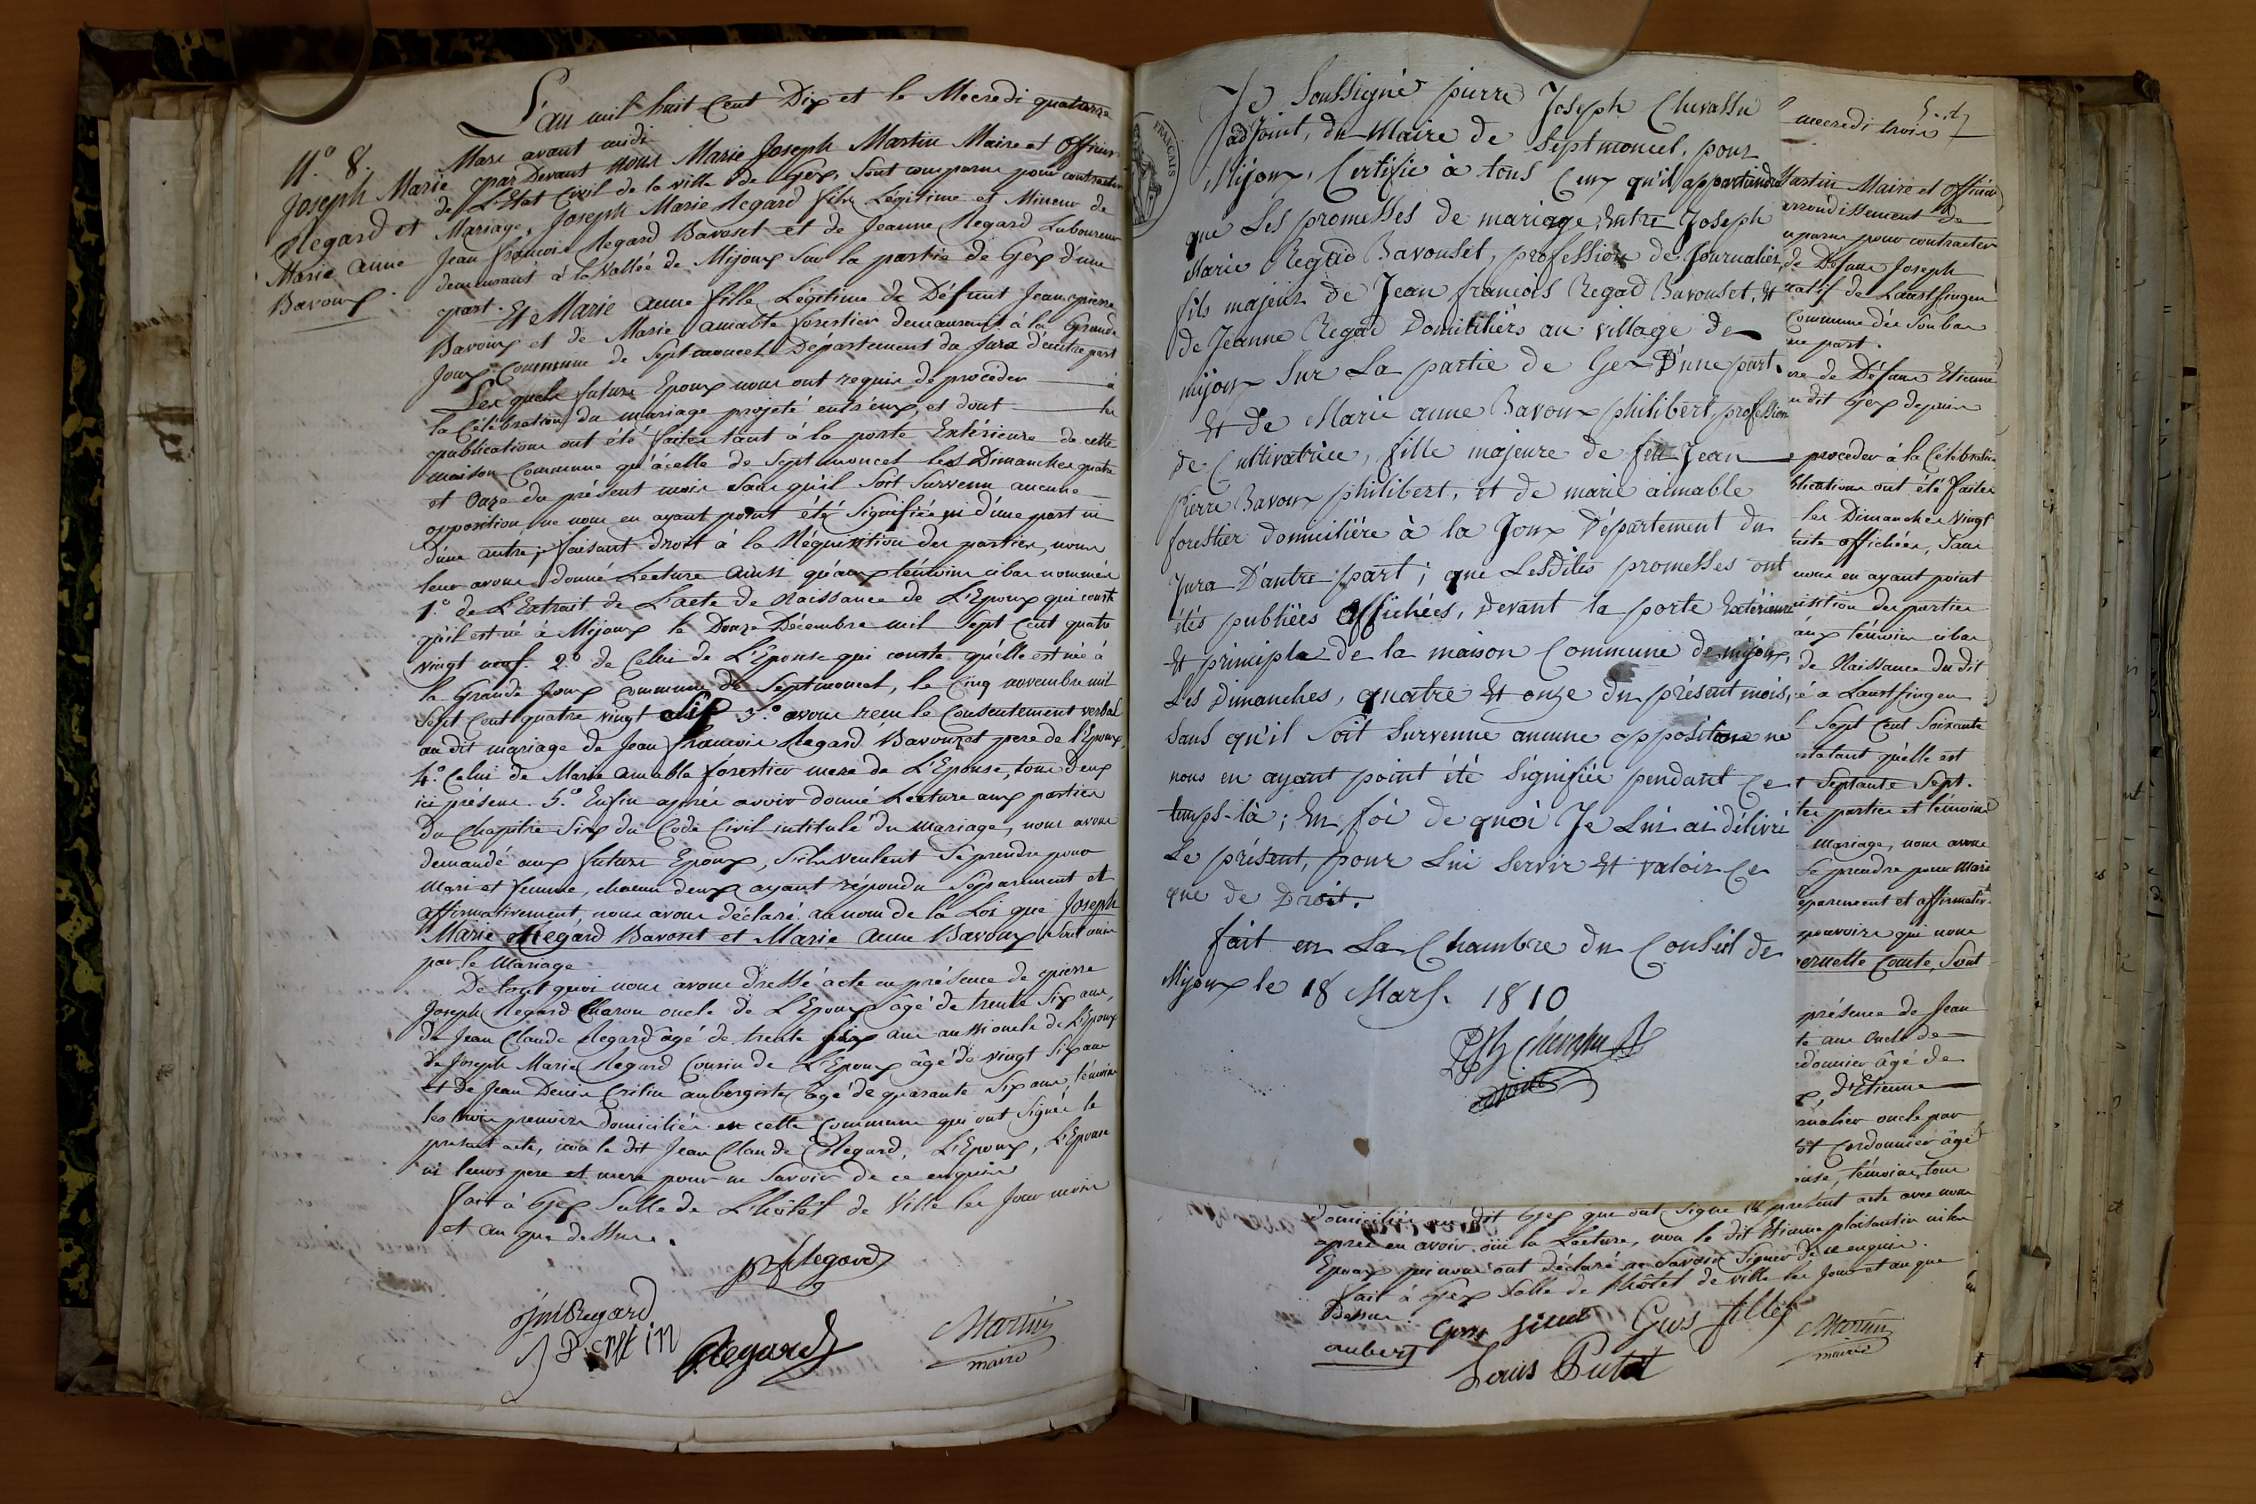 L'an mil huit Cent Dix et le Mecredi quatorze
Mars avant midi
N.o 8.
Joseph Marie
Regard et
Marie Anne
Bavoux.
par Devant Nous Marie Joseph Martin Maire et Officier
de L'Etat Civil de la ville de Gex, sont comparus pour contracter
Mariage, Joseph Marie Regard fils Légitime et Mineur de
Jean françois Regard Bavoset et de Jeanne Regard Laboureur
demeurant à la Vallée de Mijoux sur la partie de Gex d'une
part. Et Marie Anne fille Légitime de Défunt Jean pierre
Bavoux et de Marie Amable forestier demeurant à la Grande
Joux Commune de Septmoncel Département du Jura d'autre part
Les quels futurs Epoux nous ont requis de procéder à
la Célébration du mariage projeté entr'eux, et dont les
publications ont été faites tant à la porte Extérieure de cette
maison Commune qu'à celle de Septmoncel les Dimanches quatre
et Onze du présent mois sans qu'il soit survenu aucune
opposition ne nous en ayant point été signifiée ni d'une part ni
d'une autre; faisant droit à la Réquisition des parties, nous
leur avons donné Lecture ainsi qu'aux témoins cibas nommés
1.o de L'Extrait de L'acte de Naissance de L'Epoux qui conste
qu'il est né à Mijoux le Douze Décembre mil Sept Cent quatre
vingt neuf. 2.o de Celui de L'Epouse qui conste qu'elle est née à
la Grande Joux Commune de Septmoncel, le Cinq novembre mil
Sept Cent quatre vingt 3.o avons reçu le Consentement verbal
au dit mariage de Jean françois Regard Bavouzet pere de l'Epoux,
4.o Celui de Marie Amable forestier mere de L'Epouse, tous Deux
ici présens. 5.o Enfin après avoir donné Lecture aux parties
du Chapitre Six du Code Civil intitulé du Mariage, nous avons
demandé aux futurs Epoux, s'ils veulent se prendre pour
Mari et femme, chacun d'eux ayant répondu séparement et
affirmativement, nous avons déclaré au nom de la Loi que Joseph
Marie Regard Bavoset et Marie Anne Bavoux sont unis
par le Mariage
De tout quoi nous avons Dressé acte en présence de pierre
Joseph Regard Charon oncle de L'Epoux âgé de trente Six ans,
de Jean Claude Regard âgé de trente ans aussi oncle de L'Epoux
de Joseph Marie Regard Cousin de L'Epoux âgé de vingt Six ans
et de Jean Denis Cretin aubergiste âgé de quarante Six ans, témoins
les trois premiers Domiciliés en cette Commune qui ont Signés le
présent acte, non le dit Jean Claude Regard, L'Epoux, L'Epouse
ni leurs pere et mere pour ne Savoir de ce enquis
fait à Gex Salle de L'hôtel de Ville les Jour mois
et an que dessus.
pz Regard
jmRegard
J D Cretin
Regard
Martin
maire
FRANÇAIS
Je Soussigné pierre Joseph Chevassu
adjoint, du Maire de Septmoncel, pour
Mijoux, Certifie à tous Ceux qu'il appartiendra
que Les promesses de mariage, Entre Joseph
Marie Regad Bavouset, profession de Journalier,
fils majeur de Jean francois Regad Bavouset, et
de Jeanne Regad Domiciliés au village de
mijoux Sur La partie de Gex D'une part.
Et de Marie anne Bavoux philibert, profession
de Cultivatrice, fille majeure de feu Jean
Pierre Bavoux philibert, et de marie aimable
forestier domiciliére à la Joux Département du
Jura D'autre part; que Lesdites promesses ont
étés publiées affichées, Devant la porte Extérieure
Et principle de la maison Commune de mijoux,
Les Dimanches, quatre Et onze du présent mois,
Sans qu'il soit survenue aucune opposition ne
nous en ayant point été signifiée pendant ce
temps-là; En foi de quoi Je Lui ai délivré
Le présent, pour Lui Servir Et valoir Ce
que de Droit.
fait en La Chambre du Conseil de
Mijoux le 18 Mars. 1810
Chevassu
adjoint
mecredi trois
Martin Maire et Officier
arrondissement de
parus pour contracter
de Défunt Joseph
natif de Lanstfingen
Commune des
une part.
de Défunt Etienne
dit Gex depuis
proceder à la Célébration
publications ont été faites
les Dimanches Vingt
affichées, Sans
nous en ayant point
des parties
aux témoins cibas
de Naissance du dit
né a Lanstfingen
Sept Cent Soixante
constatant qu'elle est
Septante Sept.
parties et témoins
Mariage, nous avons
se prendre pour Mari
séparement et affirmativ-
pouvoirs qui nous
Comte, Sont
présence de Jean
ans oncle de
cordonnier âgé de
d'Etienne
oncle par
Cordonnier âgé
témoins, tous
Domiciliés au dit Gex que ont Signe le present acte avec nous
apres en avoir oui la Lecture, non le dit Etienne plaisantin ni les
Epoux qui nous ont déclaré ne Savoir Signer de ce enquis.
fait à Gex Salle de l'hôtel de ville les Jour et an que
Dessus.
aubert
Louis Putod
Martin
maire